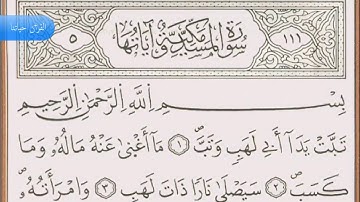 القرآن حياتنا
١١١ سورة المسد مكية وآياتها ٥
بِسْمِ اللَّهِ الرَّحْمَٰنِ الرَّحِيمِ
تَبَّتْ يَدَا أَبِي لَهَبٍ وَتَبَّ ۝١ مَا أَغْنَىٰ عَنْهُ مَالُهُ وَمَا
كَسَبَ ۝٢ سَيَصْلَىٰ نَارًا ذَاتَ لَهَبٍ ۝٣ وَامْرَأَتُهُ